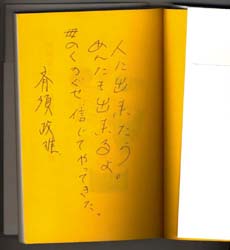 人に出来たら
めんたも出来るよ。
母のくちぐせ 信じてやってきた。
斉須政雄